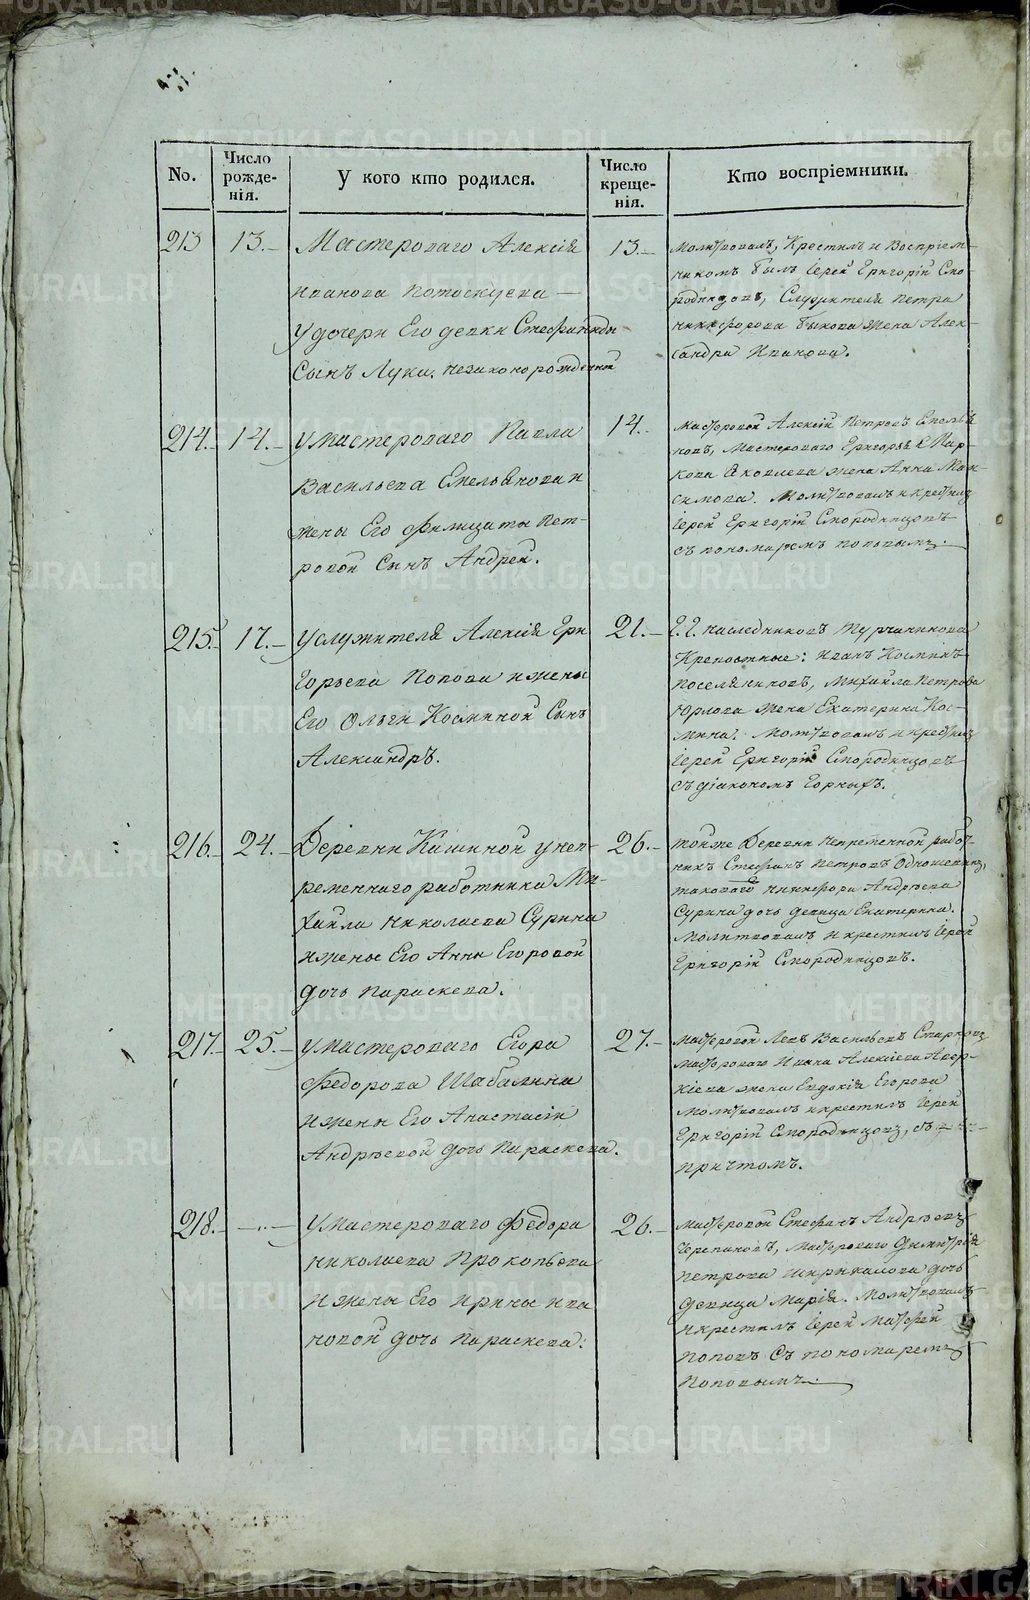 No.
Число
рожде-
нія.
У кого кто родился.
Число
креще-
нія.
Кто воспріемники.
213
13.-
Мастероваго Алексія
Иванова Потоскуева —
У дочери Его девки Стефаниды
Сынъ Лука. незаконорожденный
13.-
молитвовалъ, Крестилъ и Воспріем-
никомъ былъ Іерей Григорій Смо-
родинцовъ, Служителя Петра
никифорова Быкова жена Алек-
сандра Иванова.
214.-
14.-
у мастероваго Павла
Васильева Емельянова и
жены Его Филицаты Пет-
ровой Сынъ Андрей.
14.-
мастеровой Алексій Петровъ Емелья
новъ, Мастероваго Григорья Мар-
кова Яковлева жена Анна Мак-
симова. Молитвовалъ и крестилъ
Іерей Григорій Смородинцовъ
съ пономаремъ поповымъ.
215.-
17.-
у служителя Алексія Гри
горьева Попова и жены
Его Ольги Косминой Сынъ
Александръ.
21.-
Г. Г. наследниковъ Турчанинова
Крепостные: Иванъ Косминъ
поселяниновъ, Михайла Петрова
Юрлова жена Екатерина Кос-
мина. Молитвовалъ и крестилъ
Іерей Григорій Смородинцовъ
съ діакономъ Горныхъ.
216.-
24.-
Деревни Кашиной у неп-
ременнаго работника Ми-
хайла Николаева Сурина
и жены Его Анны Егоровой
дочь Параскева.
26.-
тойже Деревни непременной работ-
никъ Стефанъ Петровъ Одношевинъ,
таковаго никифора Андрѣева
Сурина дочь девица Екатерина.
Молитвовалъ и крестилъ Іерей
Григорій Смородинцовъ.
217.-
25.-
у мастероваго Егора
Федорова Шабалина
и жены Его Анастасіи
Андрѣевой дочь Параскева.
27.-
мастеровой Левъ Васильевъ Старковъ,
мастероваго Ивана Алексіева Авер-
кіева жена Евдокія Егорова
Молитвовалъ и крестилъ Іерей
Григорій Смородинцовъ, съ
причтомъ.
218.-
—.—
у мастероваго Федора
николаева Прокопьева
и жены Его Ирины Ива
новой дочь Параскева:
26.-
мастеровой Стефанъ Андрѣевъ
Черепановъ, мастероваго Димитрія
Петрова Ширыкалова дочь
девица Марія. Молитвовалъ
и крестилъ Іерей Матфей
Поповъ Съ пономаремъ
Поповымъ.
METRIKI.GASO-URAL.RU